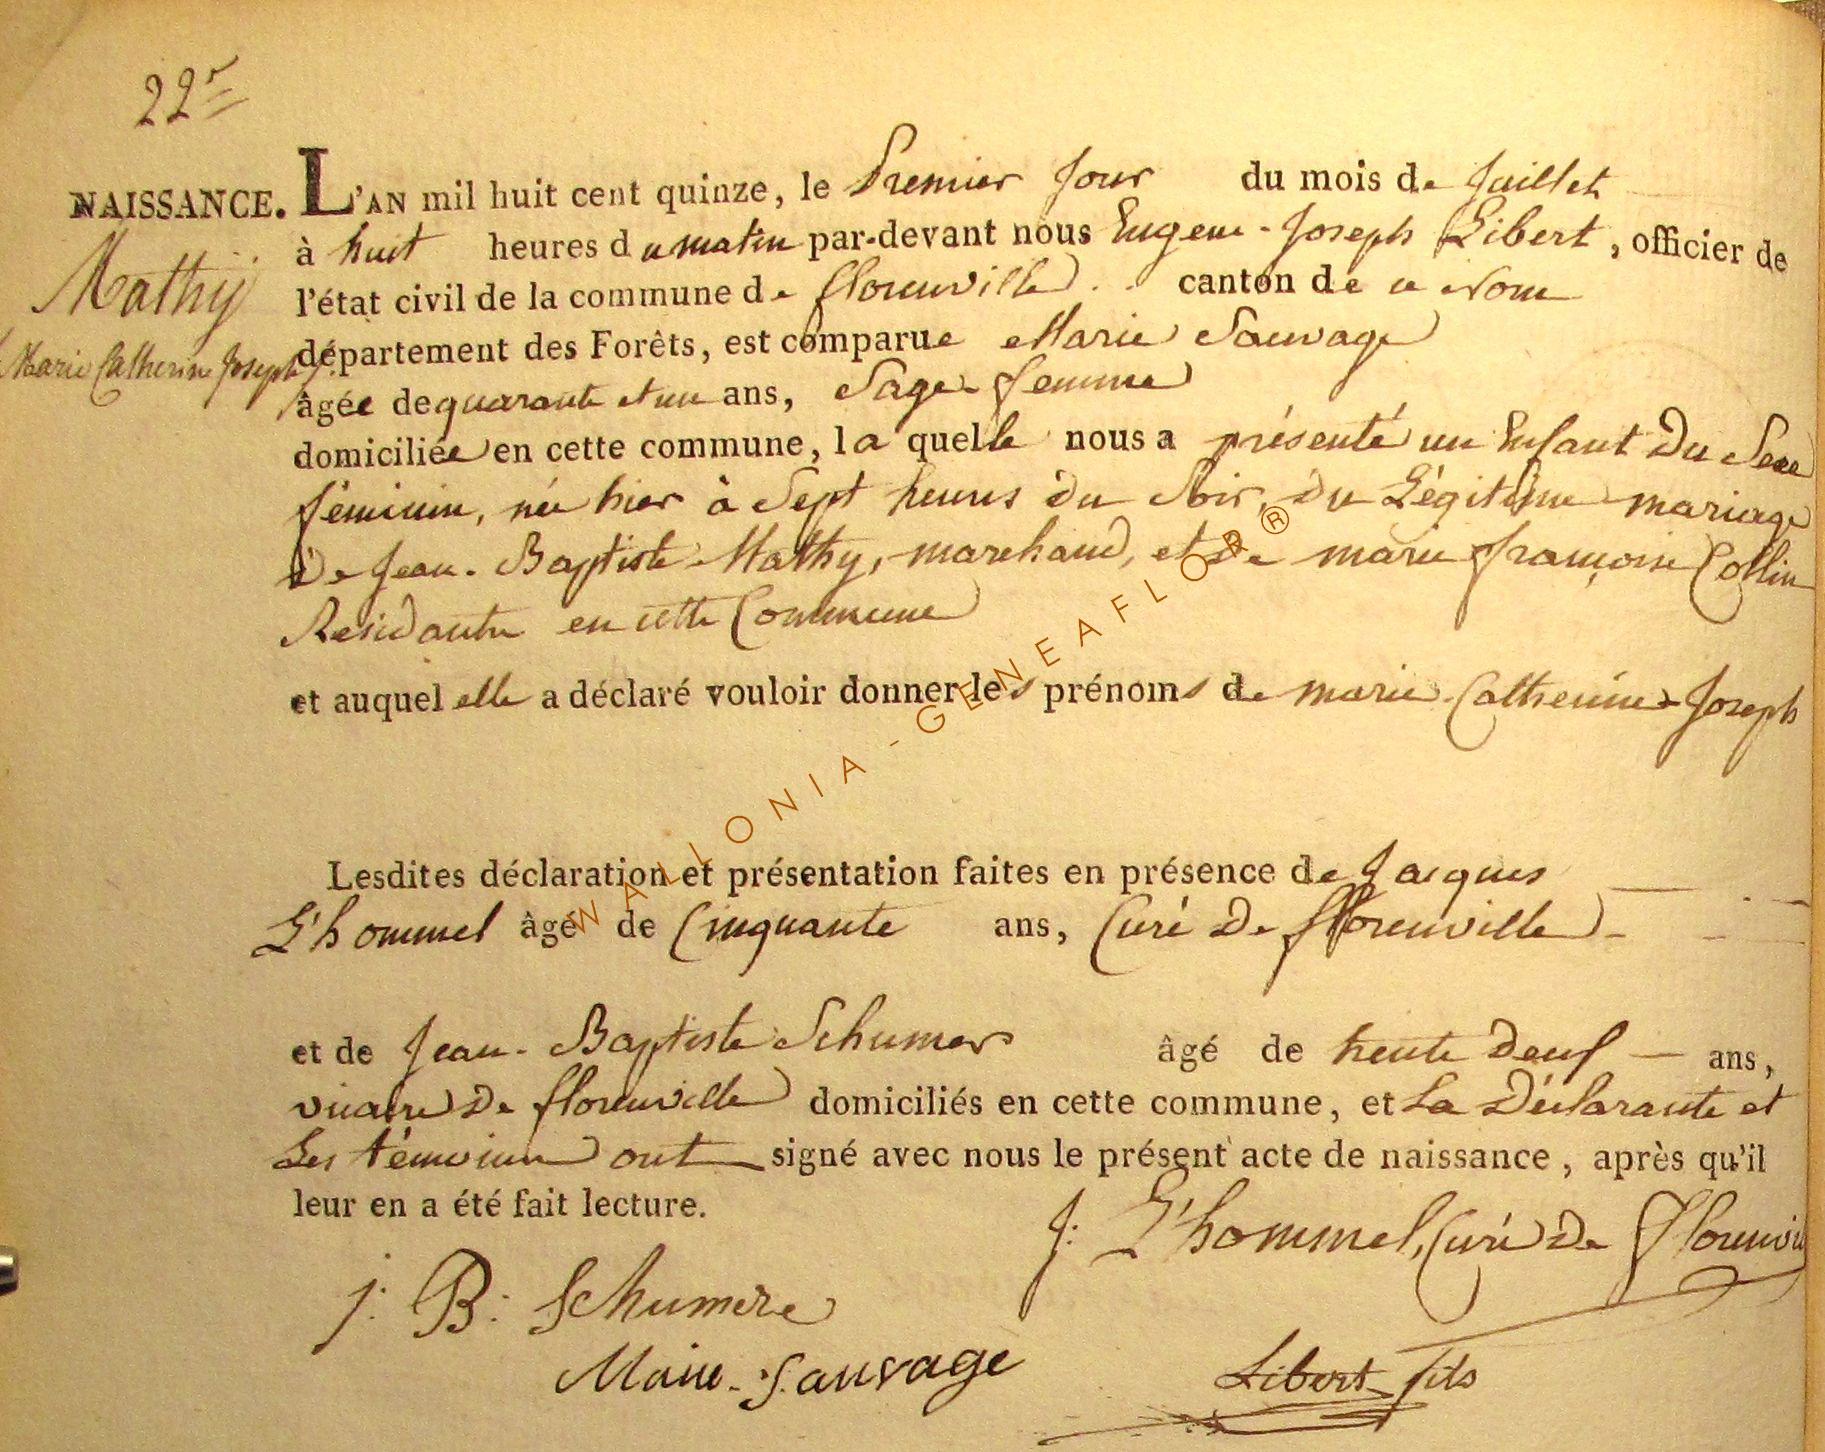 22e
NAISSANCE. L'AN mil huit cent quinze, le Premier Jour du mois de Juillet
Mathy
à huit heures du matin par-devant nous Eugene-Joseph Libert, officier de
l'état civil de la commune de florenville canton de ce Nom
Marie Catherine Joseph
département des Forêts, est comparue Marie Sauvage
âgée de quarante et un ans, Sage-femme
domiciliée en cette commune, la quelle nous a présenté un Enfant Du Sexe
féminin, née hier à Sept heures du Soir, du Légitime mariage
De Jean-Baptiste Mathy, marchand, et De marie françoise Collin
Residante en cette Commune
et auquel elle a déclaré vouloir donner les prénoms de marie-Catherine-Joseph
Lesdites déclaration et présentation faites en présence de Jacques
L'hommel âgé de Cinquante ans, Curé De fflorenville
et de Jean-Baptiste Schumer âgé de trente Deuf ans,
vicaire De florenville domiciliés en cette commune, et La Déclarante et
Les témoins ont signé avec nous le présent acte de naissance, après qu'il
leur en a été fait lecture.
J: L'hommel, Curé De Florenvil
j: B: Schumere
Marie-Sauvage
Libert fils
WALLONIA-GENEAFLOR®